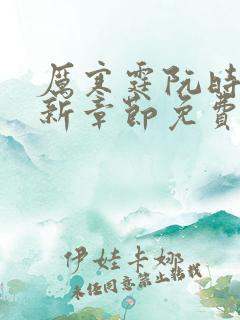 厲寒霆阮時
新章節免費
伊娃卡娜
未经同意禁止转载